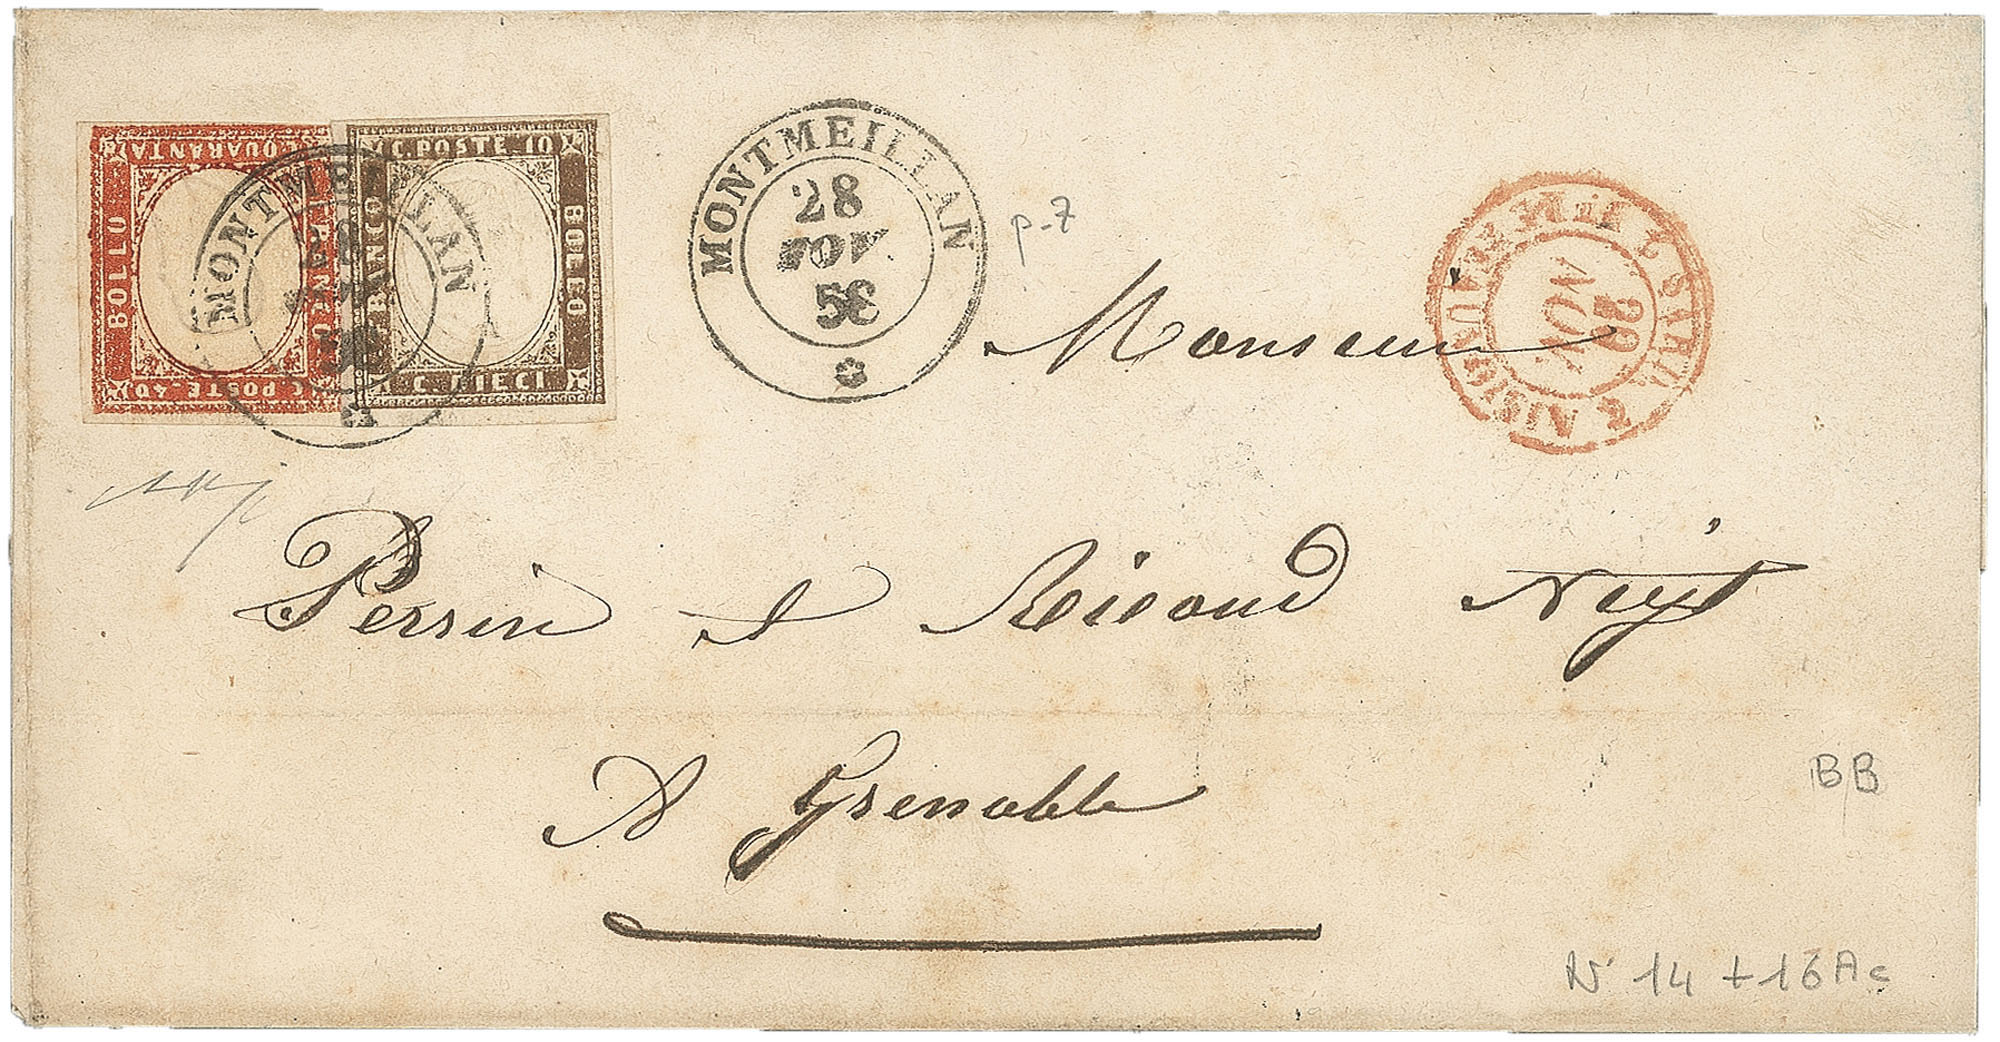 C. QUARANTA
BOLLO
C. POSTE. 40
C. POSTE. 10
FRANCO
BOLLO
C. DIECI
MONTMEILLAN
28
MONTMEILLAN
28
NOV
58
p. 7
SARD. 2
29
NOV.
Monsieur
Perrin et Ricoud Neg.t
A Grenoble
BB
N° 14 + 16Ac